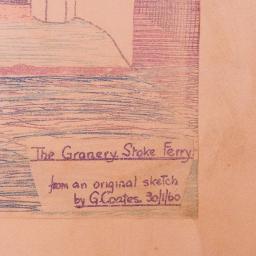 The Granery Stoke Ferry
from an original sketch
by G.Coates 30/1/60